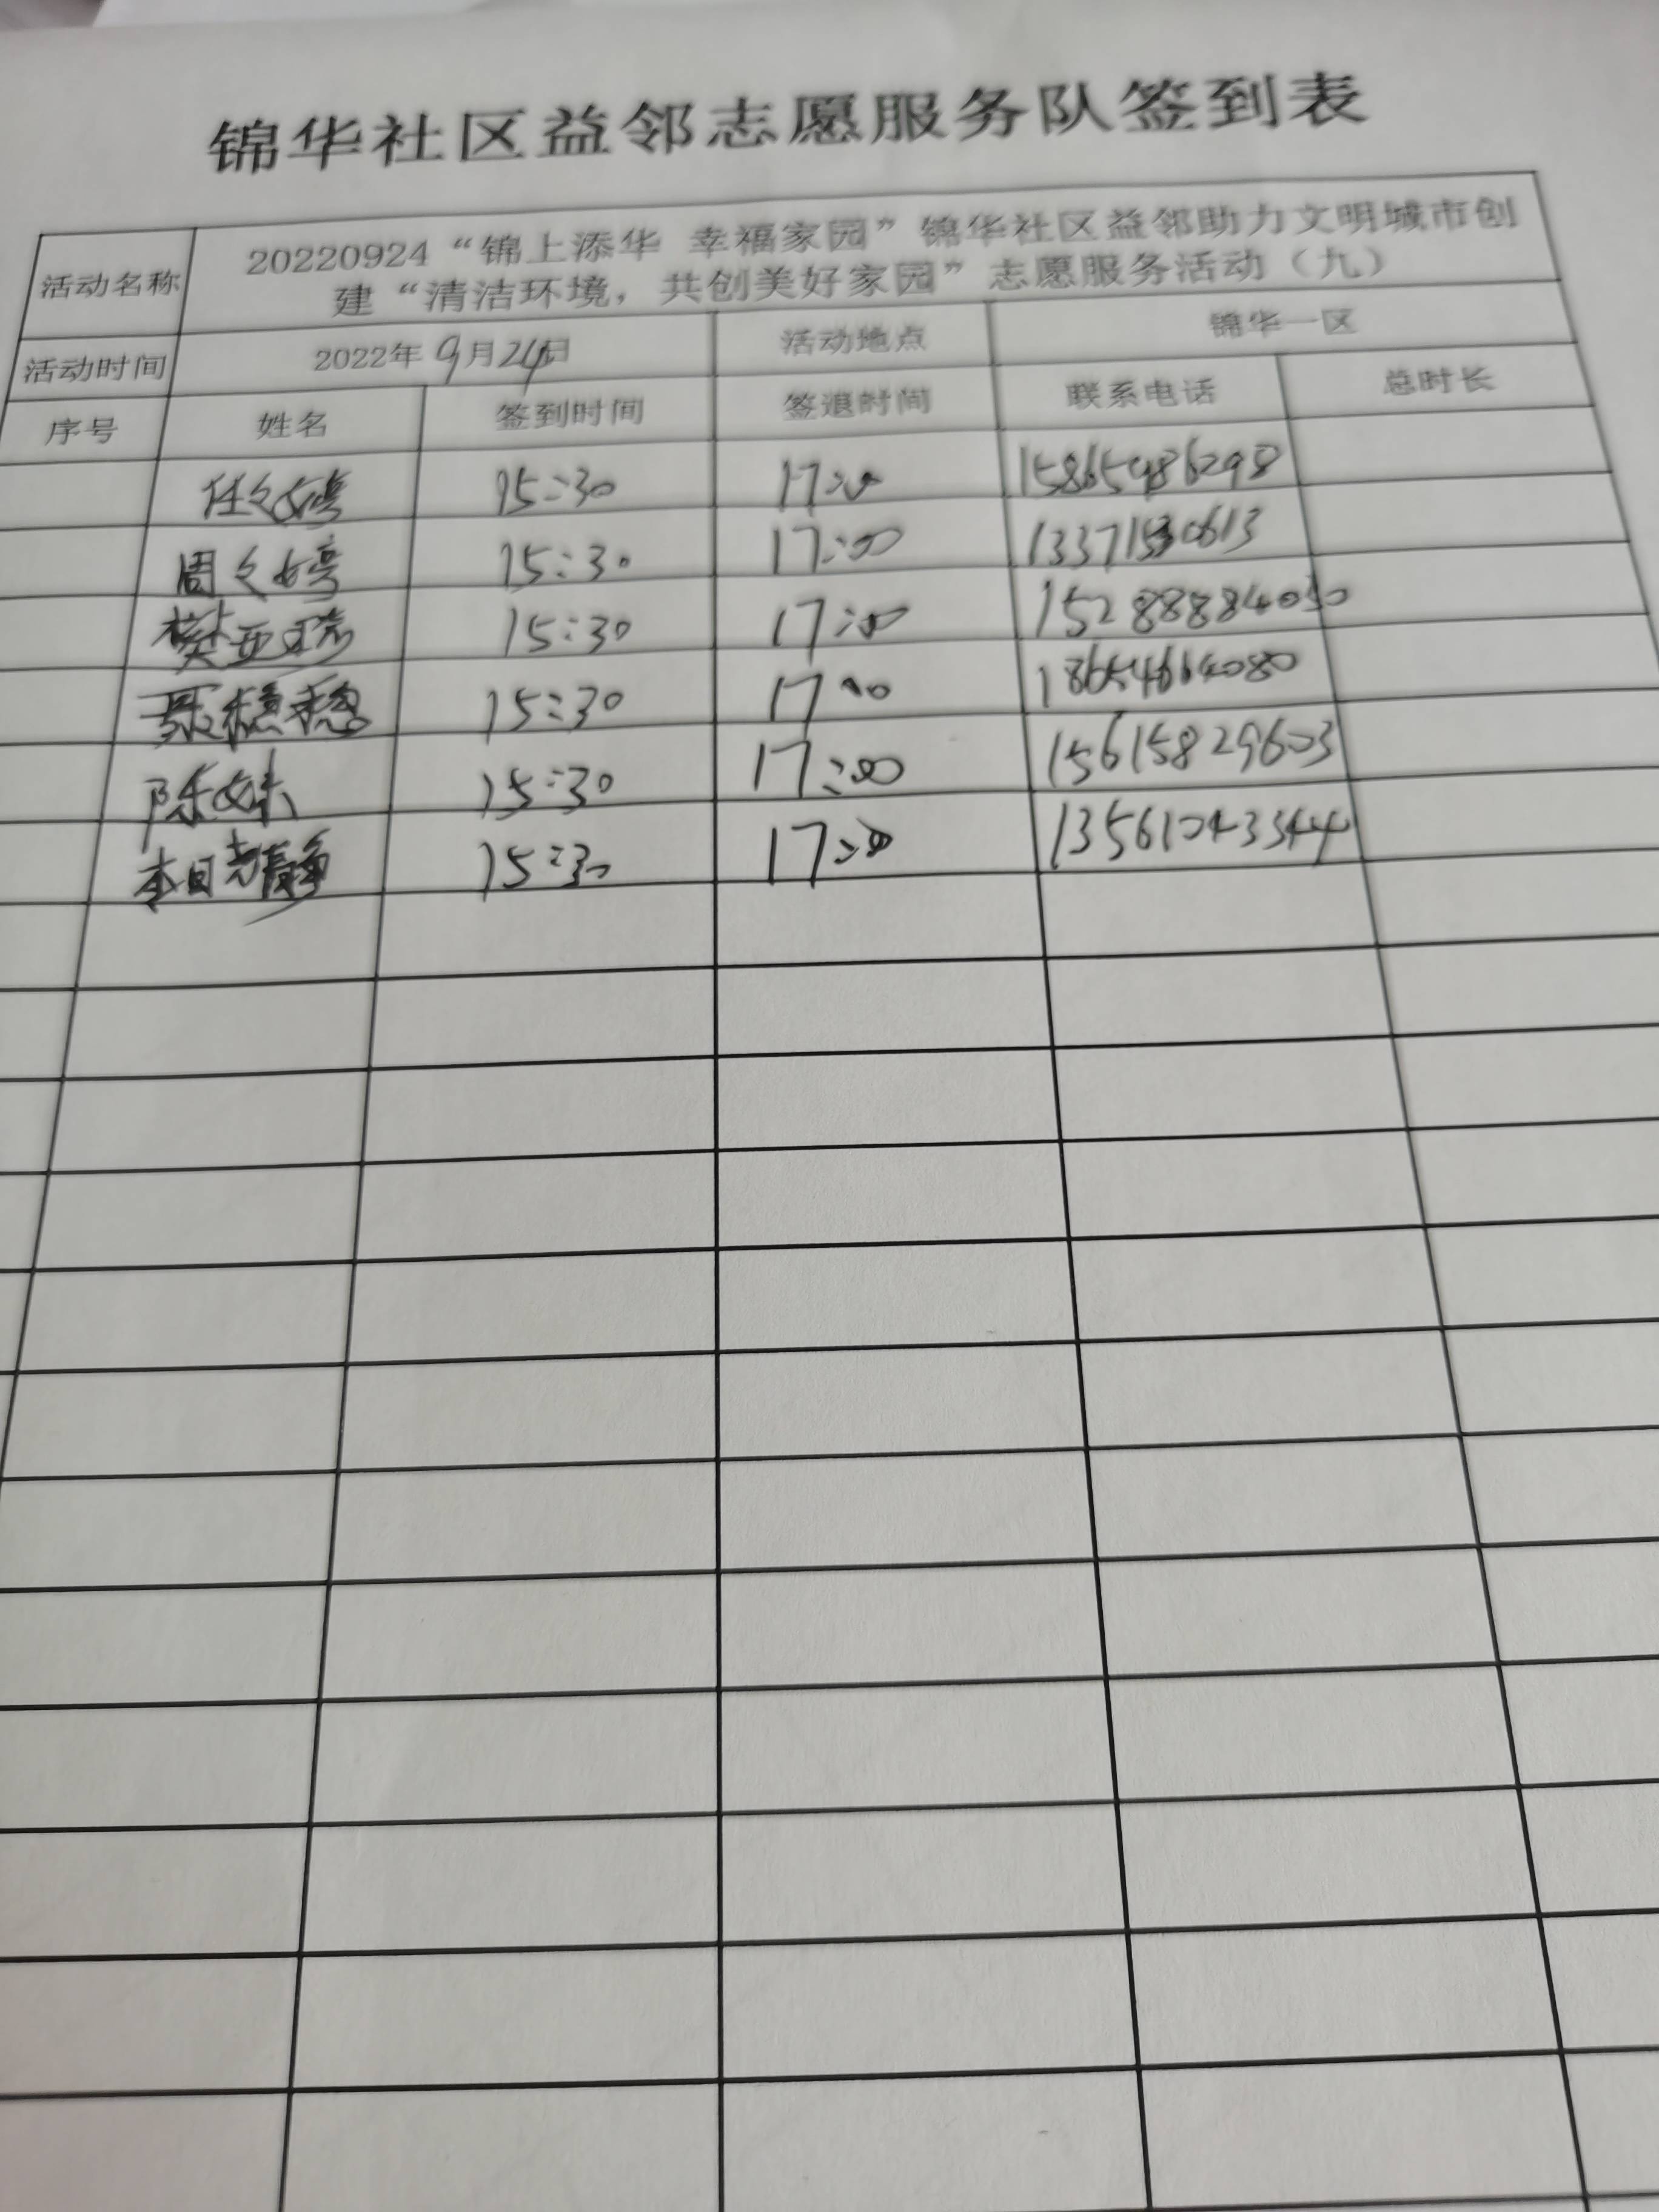 锦华社区益邻志愿服务队签到表
活动名称 20220924“锦上添华 幸福家园”锦华社区益邻助力文明城市创
建“清洁环境，共创美好家园”志愿服务活动（九）
活动时间 2022年9月24日 活动地点 锦华一区
序号 姓名 签到时间 签退时间 联系电话 总时长
任文婷 15:30 17:00 15865486298
周文婷 15:30 17:00
樊亚瑞 15:30 17:00 15288884030
聂穗穗 15:30 17:00 18654664080
陈妹 15:30 17:00 15615829603
15:30 17:00 13561043344